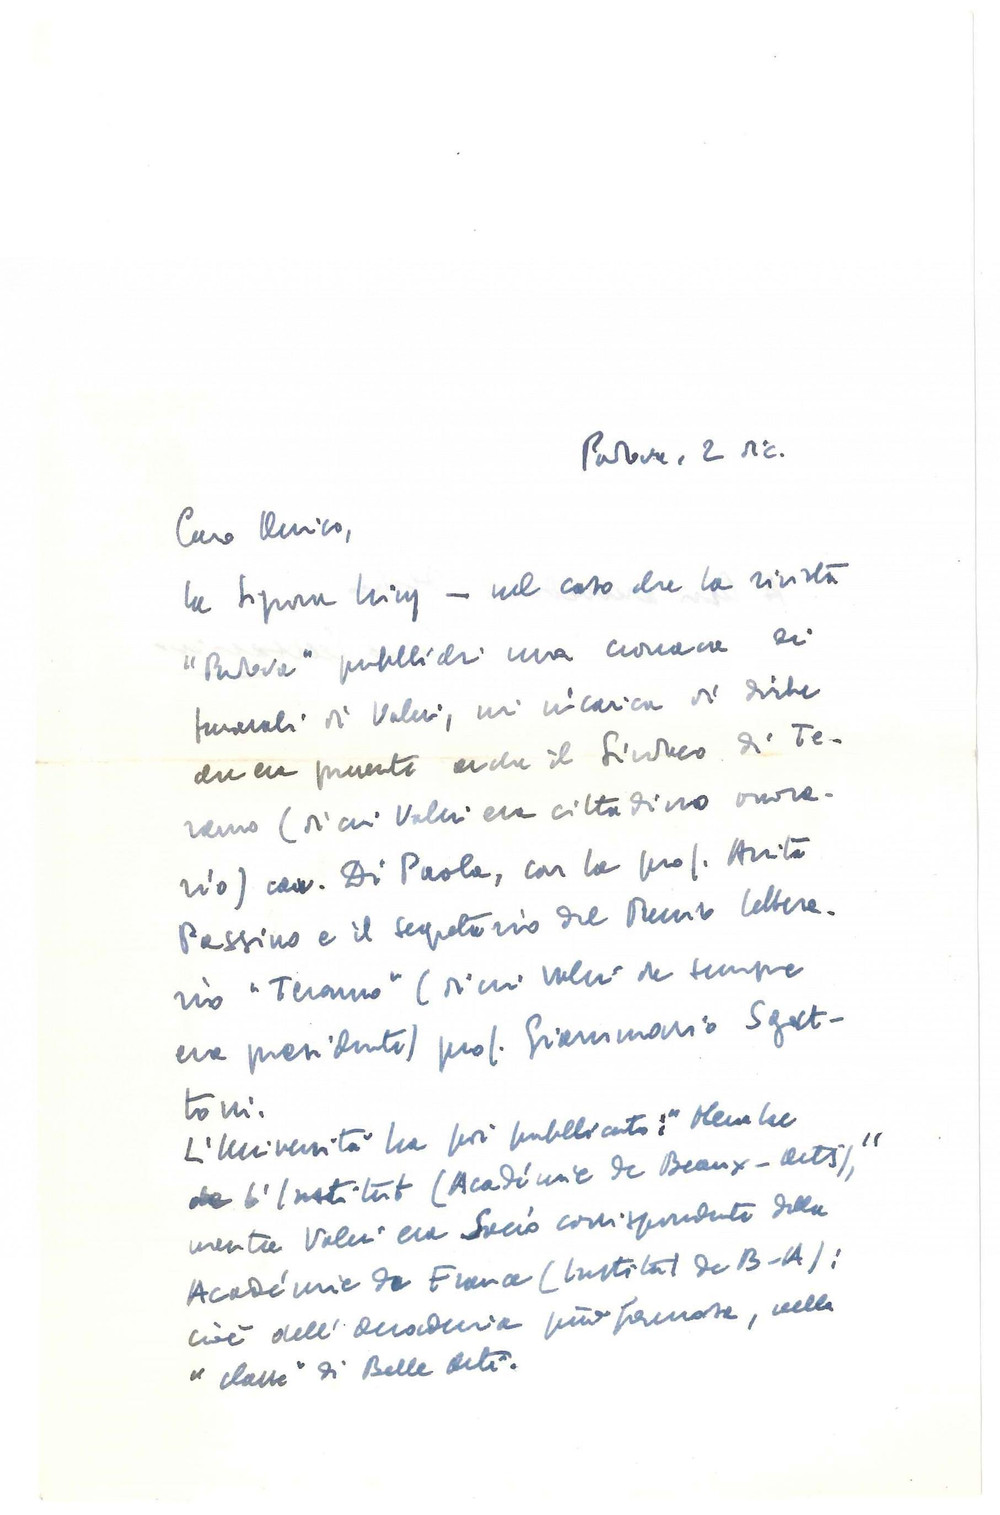 Padova, 2 dic.
Caro Amico,
la Signora – nel caso che la rivista
"Padova" pubblichi una cronaca dei
funerali di Valeri, mi incarica di dirLe
che era presente anche il Sindaco di Te-
ramo (di cui Valeri era cittadino onora-
rio) cav. Di Paola, con la prof. Anita
Passino e il segretario del Premio lettera-
rio "Teramo" (di cui Valeri da sempre
era presidente) prof. Giammario Sgat-
toni.
L'Università ha poi pubblicato: "Membre
de l'Institut (Académie de Beaux-Arts),"
mentre Valeri era Socio corrispondente della
Académie de France (Institut de B-A):
cioè dell'Accademia più famosa, nella
"classe" di Belle Arti.